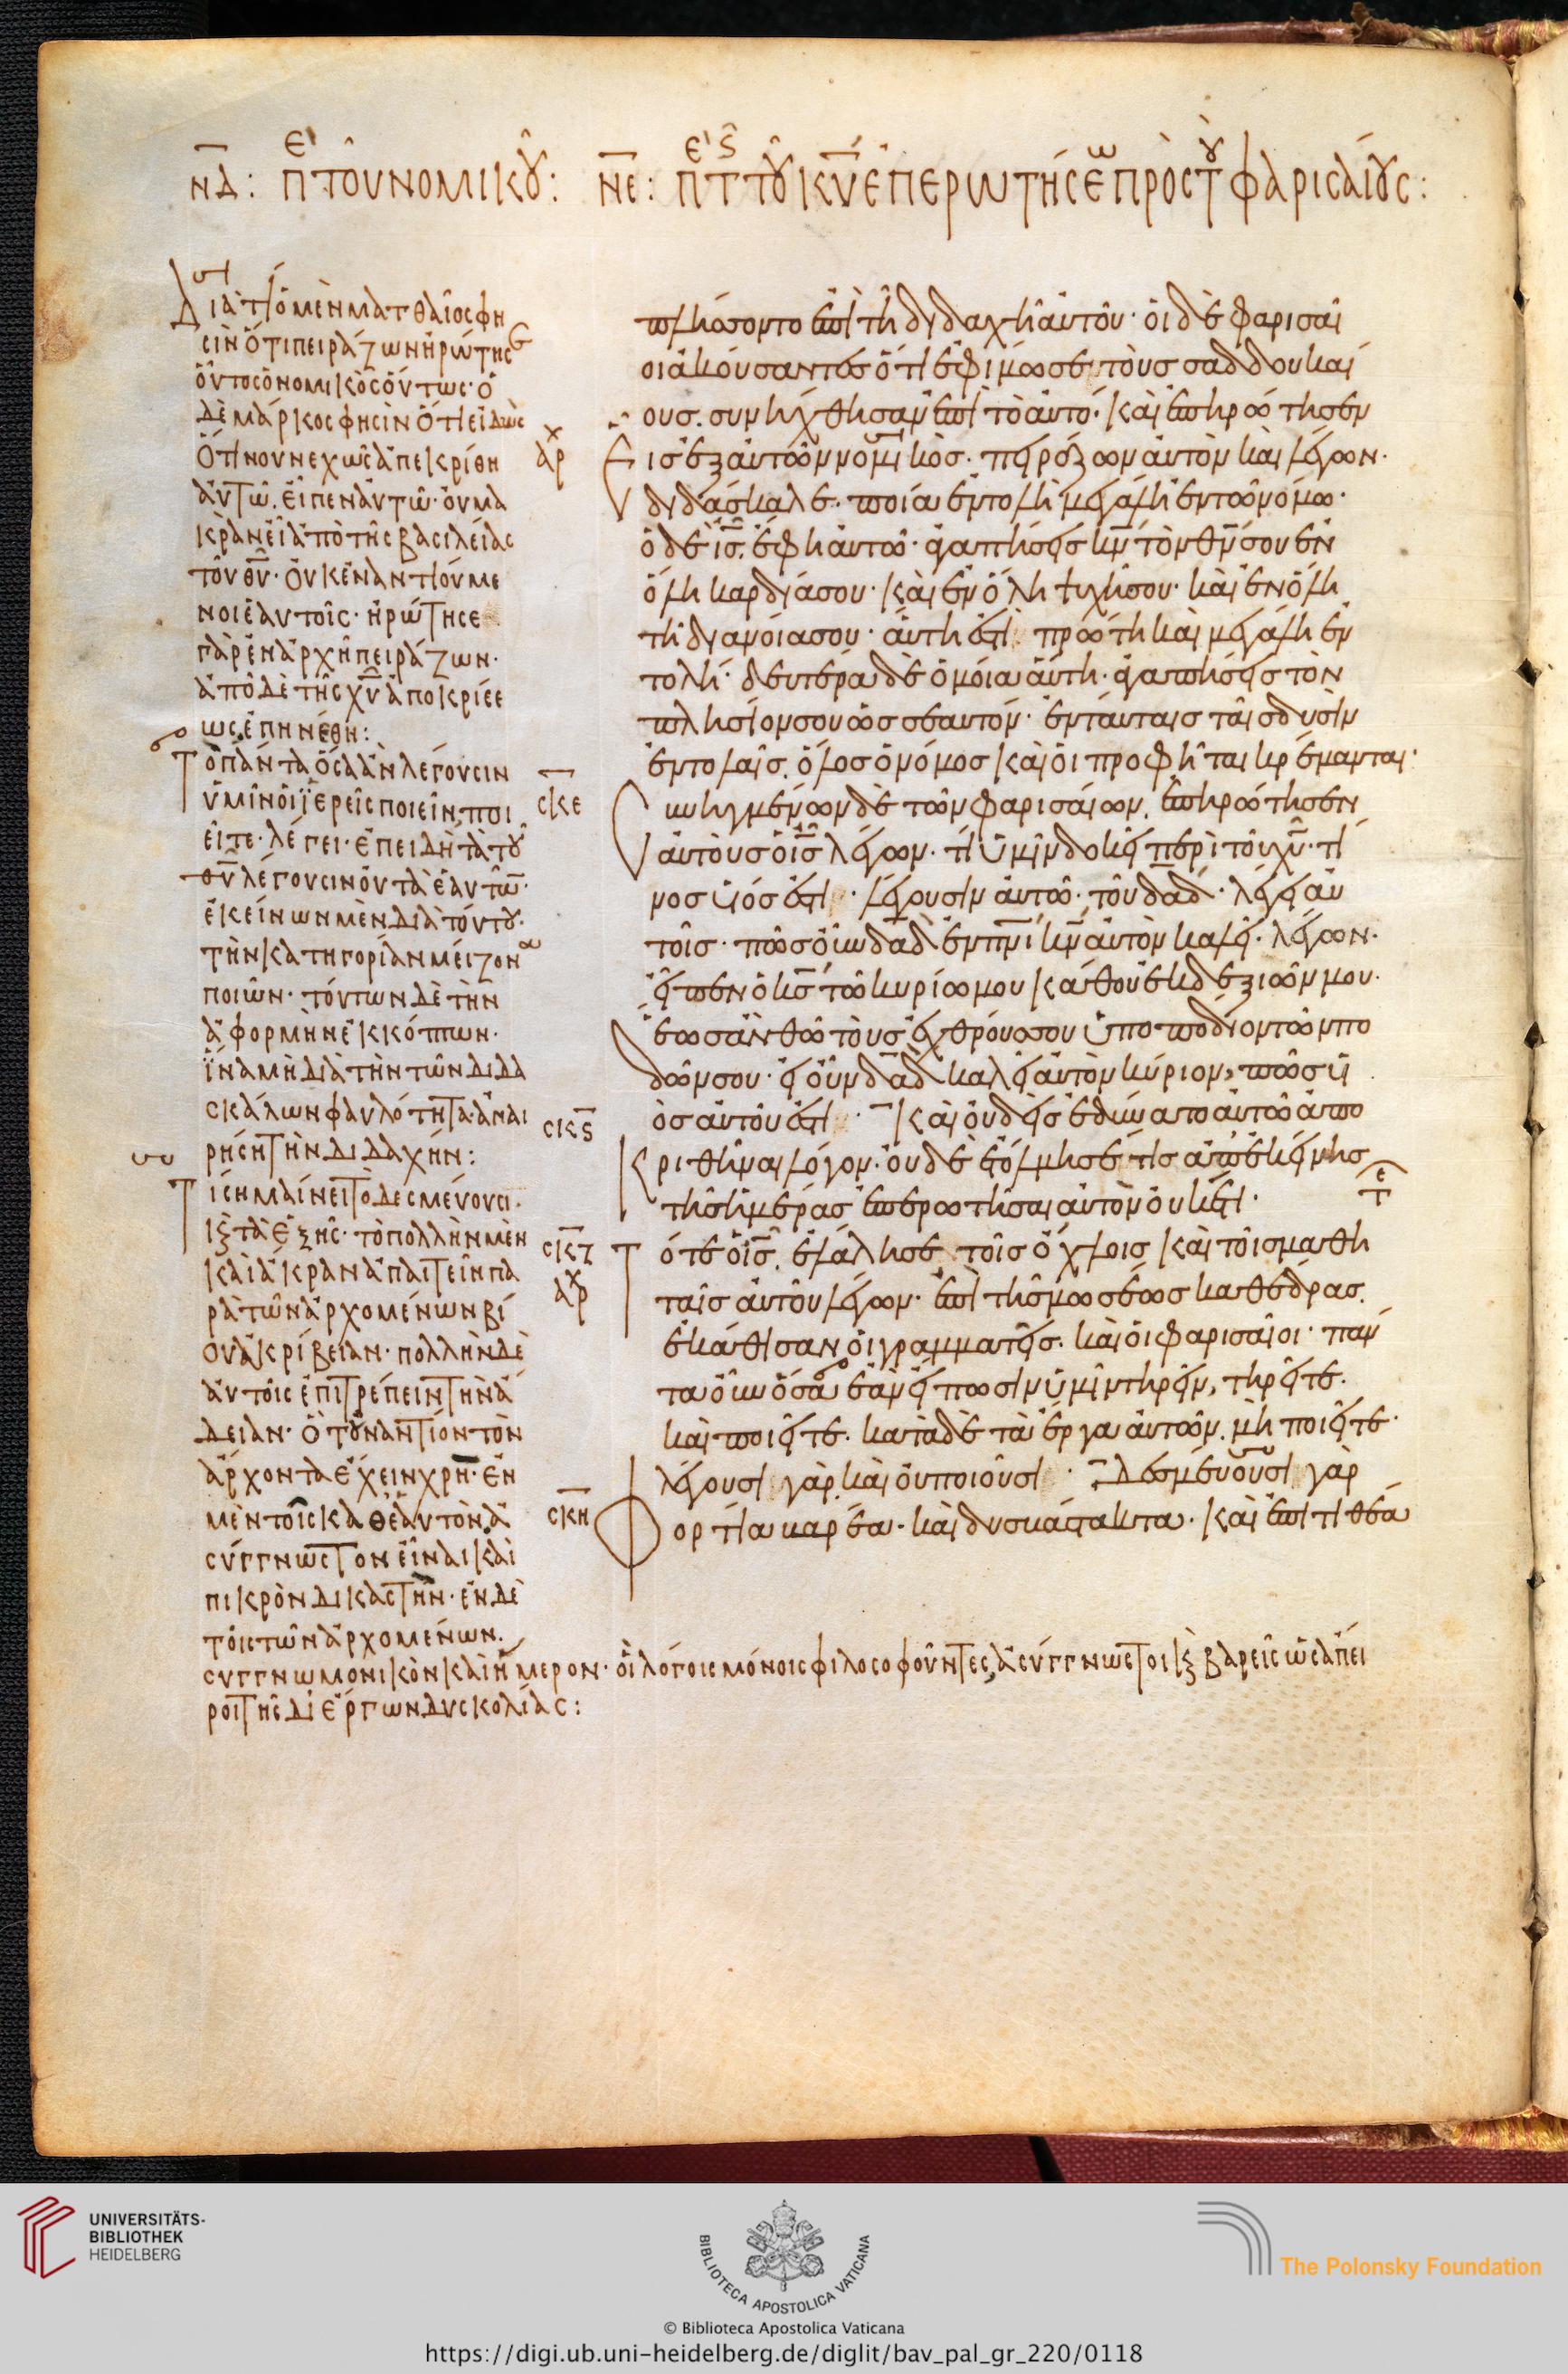 ΝΔ: ΠΕΡΙ ΤΟΥ ΝΟΜΙΚΟΥ: ΝΕ: ΠΕΡΙ ΤΗΣ ΤΟΥ ΚΥ ἘΠΕΡΩΤΉΣΕΩΣ ΠΡῸΣ ΤΟῪΣ ΦΑΡΙΣΑΊΟΥΣ:
Διατί ὁ μὲν ματθαῖος φη
σὶν ὅτι πειράζων ἠρώτησε
οὗτος ὁ νομικὸς ὄντως· ὁ
δὲ μάρκος φησὶν ὅτι εἰδὼς
ὅτι νουνεχῶς ἀπεκρίθη
αὐτῶ. εἶπεν αὐτῶ· οὐ μα
κρὰν εἶ ἀπὸ τῆς βασιλείας
τοῦ θῦ· οὐκ ἐναντιούμε
νοι ἑαυτοῖς· ἠρώτησε
γὰρ ἐν ἀρχῆ πειράζων·
ἀπὸ δὲ τῆς χῦ ἀποκρίσε
ως ἐπηνέθη:
Τὸ πάντα ὅσα ἂν λέγουσιν
ὑμῖν οἱ ἱερεῖς ποιεῖν, ποι
εῖτε· λέγει· ἐπειδὴ τὰ τοῦ
θῦ λέγουσιν οὐ τὰ ἑαυτῶν·
ἐκείνων μὲν διὰ τούτου
τὴν κατηγορίαν μείζονα
ποιῶν· τούτων δὲ τὴν
ἀφορμὴν ἐκκόπτων·
ἵνα μὴ διὰ τὴν τῶν διδα
σκάλων φαυλότητα· ἀναι
ρήση τὴν διδαχήν:
Τί σημαίνει τὸ δεσμεύουσι
κ τὰ ἑξῆς· τὸ πολλὴν μὲν
καὶ ἄκραν ἀπαιτεῖν πα
ρὰ τῶν ἀρχομένων βί
ου ἀκρίβειαν· πολλὴν δὲ
αὐτοῖς ἐπιτρέπειν τὴν ἄ
δειαν· ὃ τοὐναντίον τὸν
ἄρχοντα ἔχειν χρὴ· ἐν
μὲν τοῖς καθ' ἑαυτὸν ἀ
σύγγνωστον εἶναι καὶ
πικρὸν δικαστὴν· ἐν δὲ
τοῖς τῶν ἀρχομένων.
συγγνωμονικὸν καὶ ἥμερον· οἱ λόγοις μόνοις φιλοσοφοῦντες, ἀσύγγνωστοι κ βαρεῖς ὡς ἄπει
ροι τῆς δι' ἔργων δυσκολίας:
πλήσσοντο ἐπὶ τῆ διδαχῆ αὐτοῦ· οἱ δὲ φαρισαῖ
οι ἀκούσαντες ὅτι ἐφίμωσε τοὺς σαδδουκαί
ους. συνήχθησαν ἐπὶ τὸ αὐτό· καὶ ἐπηρώτησεν
εἷς ἐξ αὐτῶν νομικὸς. πειράζων αὐτὸν καὶ λέγων·
διδάσκαλε. ποία ἐντολὴ μεγάλη ἐν τῶ νόμω·
ὁ δὲ ἰς. ἔφη αὐτῶ· ἀγαπήσεις κν τὸν θν σου ἐν
ὅλη καρδία σου· καὶ ἐν ὅλη ψυχῆ σου· καὶ ἐν ὅλη
τῆ διανοία σου· αὕτη ἐστὶ πρώτη καὶ μεγάλη ἐν
τολή· δευτέρα δὲ ὁμοία αὐτῆ· ἀγαπήσεις τὸν
πλησίον σου ὡς σεαυτόν· ἐν ταύταις ταῖς δυσὶν
ἐντολαῖς. ὅλος ὁ νόμος καὶ οἱ προφῆται κρέμανται·
Συνηγμένων δὲ τῶν φαρισαίων. ἐπηρώτησεν
αὐτοὺς ὁ ἰς λέγων· τί ὑμῖν δοκεῖ περὶ τοῦ χυ· τί
νος υἱός ἐστι· λέγουσιν αὐτῶ· τοῦ δαδ· λέγει αὐ
τοῖς· πῶς οὖν δαδ ἐν πνι κν αὐτὸν καλεῖ· λέγων·
εἶπεν ὁ κς τῶ κυρίω μου κάθου ἐκ δεξιῶν μου·
ἕως ἂν θῶ τοὺς ἐχθρούς σου ὑποπόδιον τῶν πο
δῶν σου· εἰ οὖν δαδ καλεῖ αὐτὸν κύριον, πῶς υἱ
ὸς αὐτοῦ ἐστι· καὶ οὐδεὶς ἐδύνατο αὐτῶ ἀπο
κριθῆναι λόγον· οὐδὲ ἐτόλμησέ τις ἀπ' ἐκείνης
τῆς ἡμέρας ἐπερωτῆσαι αὐτὸν οὐκέτι·
Τότε ὁ ἰς. ἐλάλησε τοῖς ὄχλοις καὶ τοῖς μαθη
ταῖς αὐτοῦ λέγων· ἐπὶ τῆς μωσέως καθέδρας
ἐκάθισαν οἱ γραμματεῖς· καὶ οἱ φαρισαῖοι· πάν
τα οὖν ὅσα ἐὰν εἴπωσιν ὑμῖν τηρεῖν, τηρεῖτε·
καὶ ποιεῖτε· κατὰ δὲ τὰ ἔργα αὐτῶν. μὴ ποιεῖτε·
λέγουσι γὰρ καὶ οὐ ποιοῦσι· Δεσμεύουσι γὰρ
φορτία βαρέα· καὶ δυσβάστακτα· καὶ ἐπιτιθέα
ΣΚΕ
ΣΚϚ
ΣΚΖ
ΣΚΗ
UNIVERSITÄTS-
BIBLIOTHEK
HEIDELBERG
BIBLIOTECA APOSTOLICA VATICANA
The Polonsky Foundation
© Biblioteca Apostolica Vaticana
https://digi.ub.uni-heidelberg.de/diglit/bav_pal_gr_220/0118